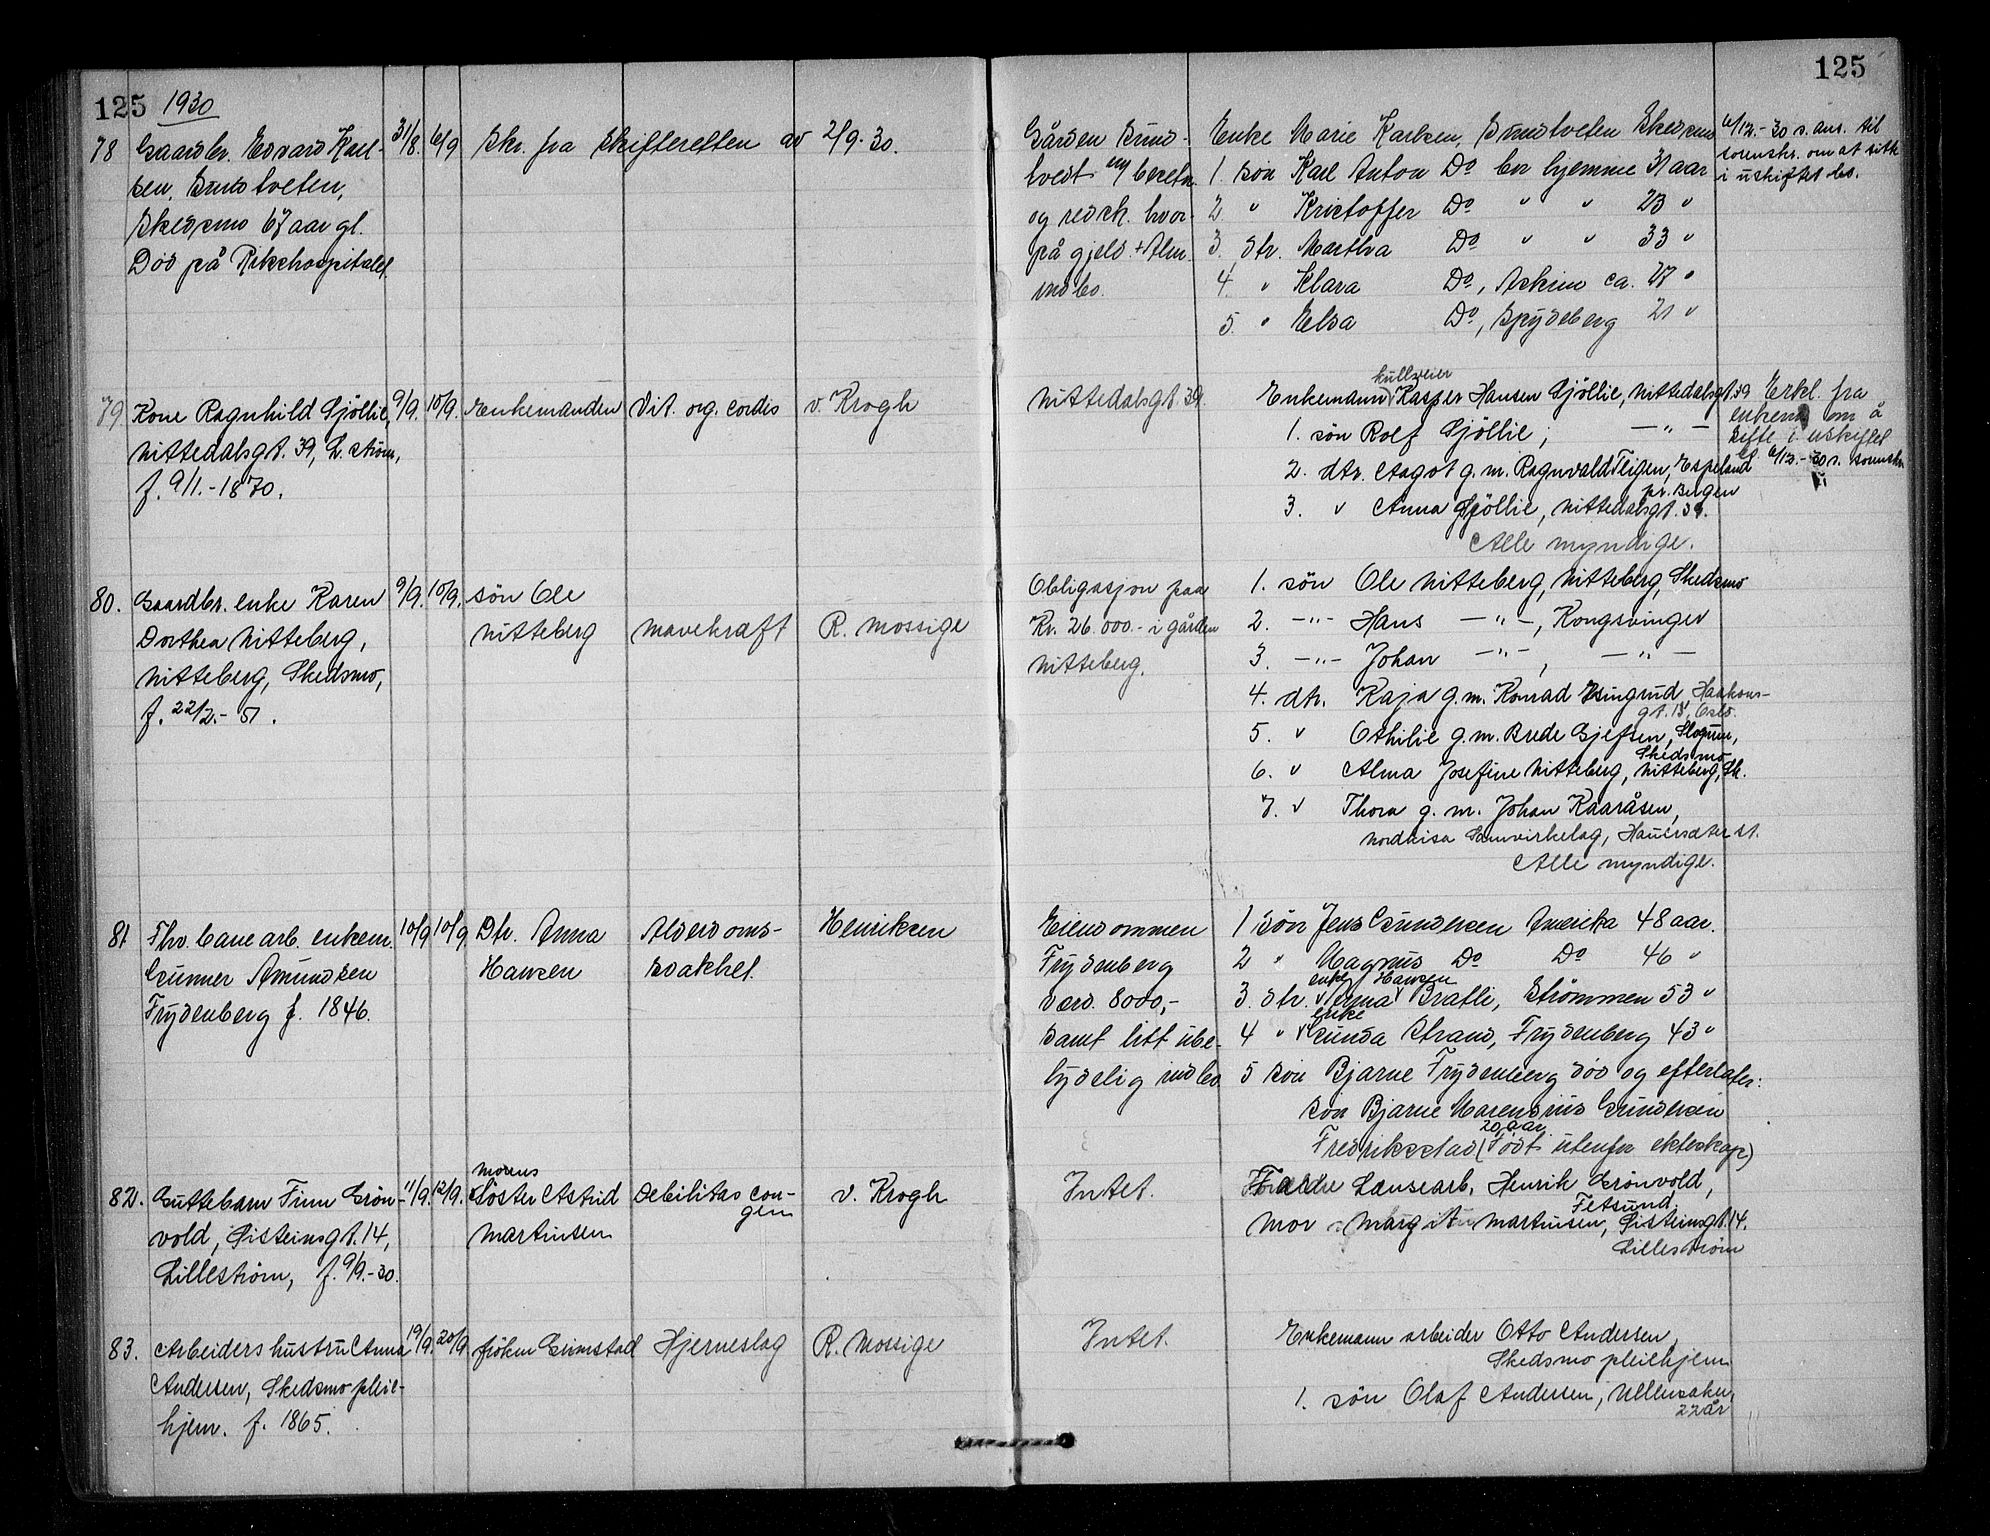 125 1930
125
78 Gaardbr. Edvard Karl-
sen, Bundtveten,
Skedsmo 67 aar gl.
Död på Rikshospitalet
31/8. 10/9 Skr. fra Skifteretten av 2/9-30.
Gården Bund-
tvedt
og redsk. hvor-
på gjeld. + Alm.
indbo.
Enke Marie Karlsen, Bundtveten Skedsmo
1. sön Karl Anton Do bor hjemme 31 aar
2 " Kristoffer Do " " 23 "
3. dtr. Martha Do " " 33 "
4. " Klara Do, Askim ca. 27 "
5. " Elsa Do, Spydeberg 21 "
6/12.-30 s. ans. til
sorenskr. om at sitte
i uskiftet bo.
79 Kone Ragnhild Gjöllie,
Nittedalsgt. 39, L.ström,
f. 9/1.-1870.
9/9. 10/9. Enkemanden Vit. org. cordis v. Krogh
Nittedalsgt. 39
kullveier
Enkemann Kasper Hansen Gjöllie, Nittedalsgt. 39
1. sön Rolf Gjöllie, —"—
2. dtr. Aagot g.m. Ragnvald Fligen, Espeland
pr. Bergen
3. " Anna Gjöllie, Nittedalsgt. 39.
Alle myndige.
Erkl. fra
enkem. om å
sitte i uskiftet
bo 6/12.-30 s. sorenskr.
80. Gaardbr. enke Karen
Dorthea Nitteberg,
Nitteberg, Skedsmo,
f. 22/2.-51.
9/9. 10/9. sön Ole
Nitteberg Mavekraft R. Mossige
Obligasjon paa
Kr. 26.000.- i gården
Nitteberg.
1. sön Ole Nitteberg, Nitteberg, Skedsmo
2. —"— Hans —"—, Kongsvinger
3. —"— Johan —"—, —"—
4. dtr. Kaja g.m. Konrad Haakons-
gt. 15, Oslo.
5. " Othilie g.m. Brede Gjefsen, Slogum,
Skedsmo
6. " Alma Josefine Nitteberg, Nitteberg, Sk.
7. " Thora g.m. Johan Kaaråsen,
Nordkisa Samvirkelag, Hauersæter st.
Alle myndige.
81 Fhv. banearb. enkem.
Gunner Amundsen
Frydenberg f. 1846.
10/9 10/9 Dtr. Anna
Hansen
Alderdoms-
svakhet.
Henriksen
Eiendommen
Frydenberg
værd. 8000,-
samt litt ube-
tydelig indbo
1 sön Jens Gundersen Amerika 48 aar.
2 " Magnus Do Do 46 "
enke Hansen
3. dtr. Anna Bratli, Strömmen 53 "
enke
4 " Gunda Strand, Frydenberg 43 "
5 sön Bjarne Frydenberg död og efterlater:
sön Bjarne Marensius Gundersen
20 aar
Fredriksstad (Födt utenfor ekteskap)
82. Guttebarn Finn Grön-
vold, Öisteinsgt. 14,
Lilleström, f. 9/9.-30.
11/9. 12/9.
morens
Söster Astrid
Martinsen
Debilitas con-
gen
v. Krogh
Intet.
Foreldre Lænsearb. Henrik Grönvold,
Fetsund
Mor: Margit Martinsen, Öisteinsgt. 14.
Lilleström
83. Arbeiders hustru Anna
Andersen, Skedsmo pleie-
hjem. f. 1865.
19/9. 20/9 fröken Grimstad Hjerneslag R. Mossige
Intet.
Enkemann arbeider Otto Andersen,
Skedsmo pleiehjem
1. sön Olaf Andersen, Ullensaker,
22 år